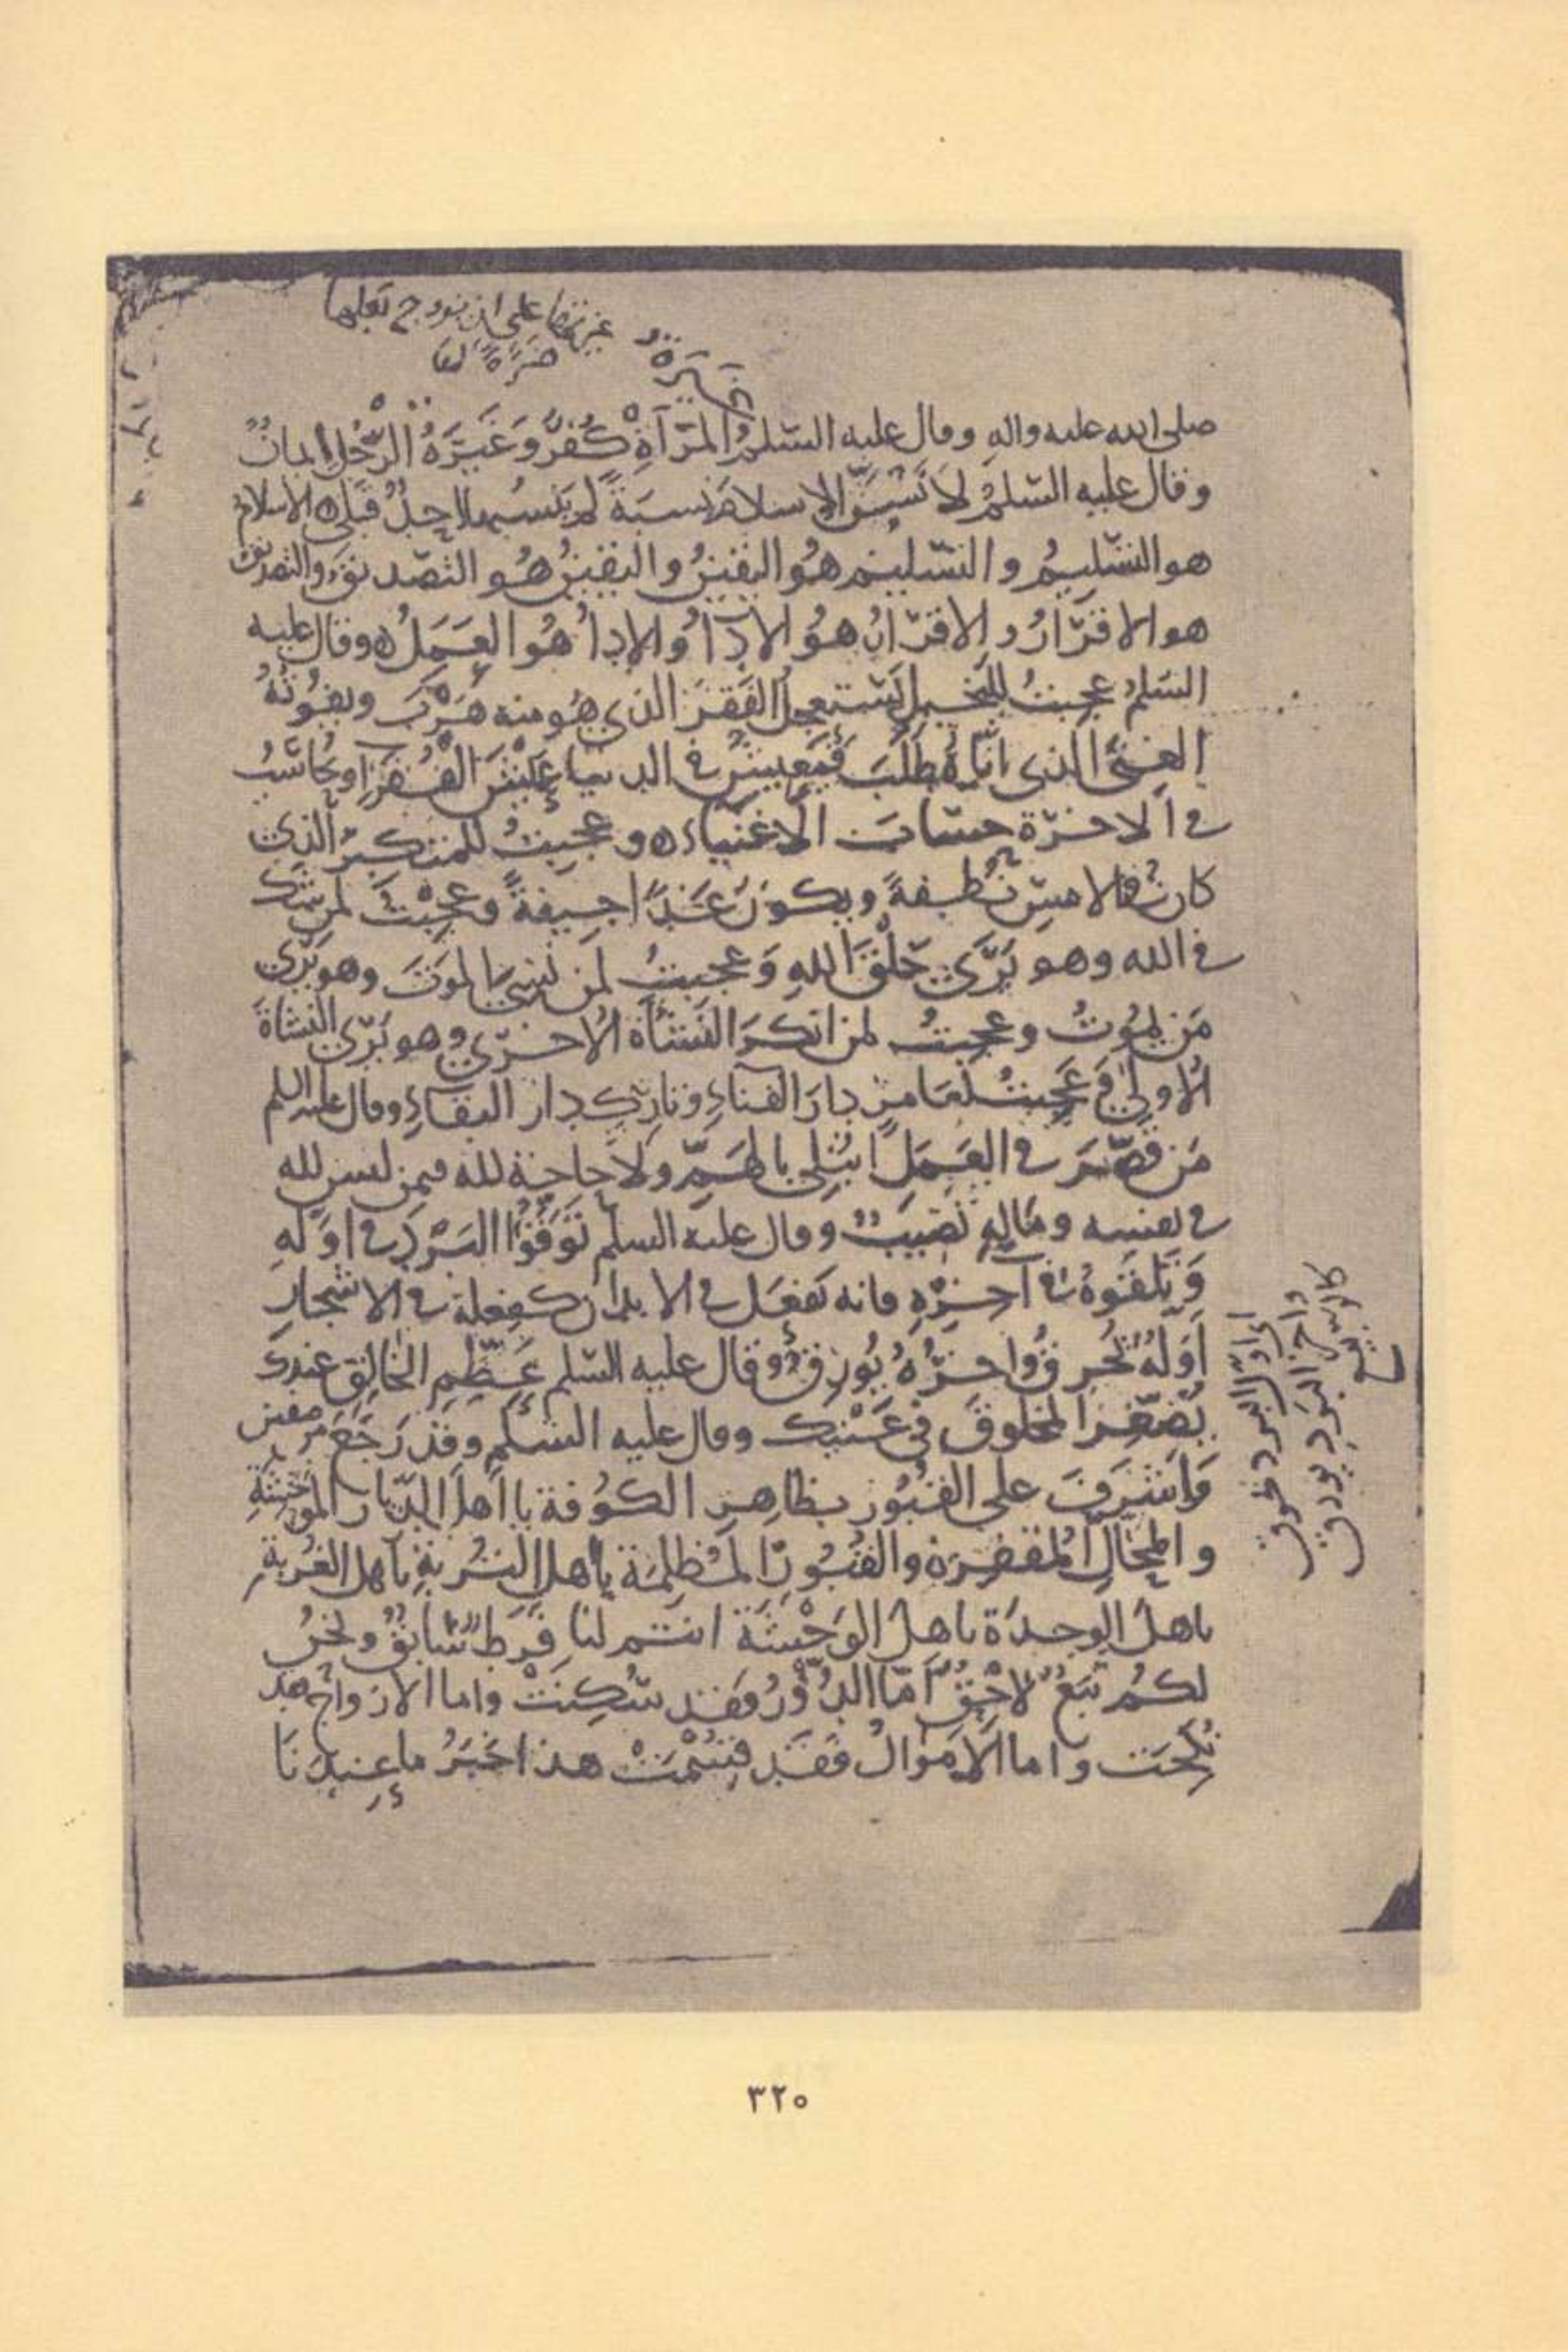 غيرتها على ان يزوج بعلها
ضرة لها
غيرة
صلى الله عليه واله وقال عليه السلم المرآة كُفرٌ وَغَيرَةُ الرَّجُلِ ايمانٌ
وقال عليه السّلمُ لاَنسُبَنَّ الاسلامَ نسبَةً لم ينسُبها احدٌ قبلى الاسلامُ
هو التسليمُ والتسليم هوُ اليقينُ واليقينُ هُو التصديقُ والتصديق
هو الاقرَارُ والاقرَارُ هوُ الادَآُ والاداُ هُوا لعَمَلُ وقال عليه
السَلمُ عجبتُ للبَخيل يَستعجلُ الفَقرَ الذى هُو منه هَرَبَ ويفُوتُهُ
الغِنىَ الذى ايّاهُ طَلَبَ فيَعيشُ فى الدنيا عَيْشَ الفُقرَاوَيُحَاسَبُ
فى الاخرَة حسَابَ الاغنيَاء وعجبتُ للمتكبّر الذى
كان بالامسِ نُطفةً ويكونُ غَدًا جيفةً وعجبْتُ لمن شك
فى الله وهو يَرَى خَلْقَ اللهِ وَعجبتُ لمن نَسِىَ الموَتَ وهو يَرَى
مَن يموُتُ وعجبتُ لمن انكرَ النَشأةَ الاُخرَى وهو يَرَى النشاةَ
الاُولى وَعَجبتُ لعَامرٍ دارَ الفَناءِ وتاركٍ دارَ البَقاءِ وقال عليه السلم
مَن قصّرَ فى العَمَل ابتُلى بالهَمِّ ولاَ حاجة لله فيمن ليس لله
فى نفسه ومَالهِ نصَيبٌ وقال عليه السلم تَوَقَّوُا البَرْدَ فى اوَّلهِ
وَتَلَقَّوهُ فى آخرِهِ فانه يَفعَل فى الابدان كفعله فى الاشجارِ
اَوّلهُ يُحرقُ واخرُهُ يُورقُ وقال عليه السّلم عِظَمُ الخالِقِ عندَكَ
يُصَغّرُ المخلوقَ فى عَيْنِك وقال عليه السَلم وقد رَجَعَ من صفين
وَاَشرَفَ على القُبُور بظاهِر الكوُفة يا اَهلَ الدّيار الموحشةِ
والمحَالِّ المُقفِرَةِ والقُبُورِ المُظلِمَة يأهلَ التُربةِ يآهل الغُربةِ
ياهلَ الوِحدَة ياهلَ الوَحْشَة انتم لنا فَرَطٌ سَابقٌ ونحنُ
لكمُ تَبَعٌ لاَحقٌ اَمّا الدُّوُرُ وفقد سُكِنَتْ واما الازواجُ فقد
نُكحَت واما الاَموَالُ فَقَد قُسِّمَتْ هذا خَبَرُ ما عِندَنَا
اى اوّل البرد يحرق
واخر البرد يورق
٣٢٠